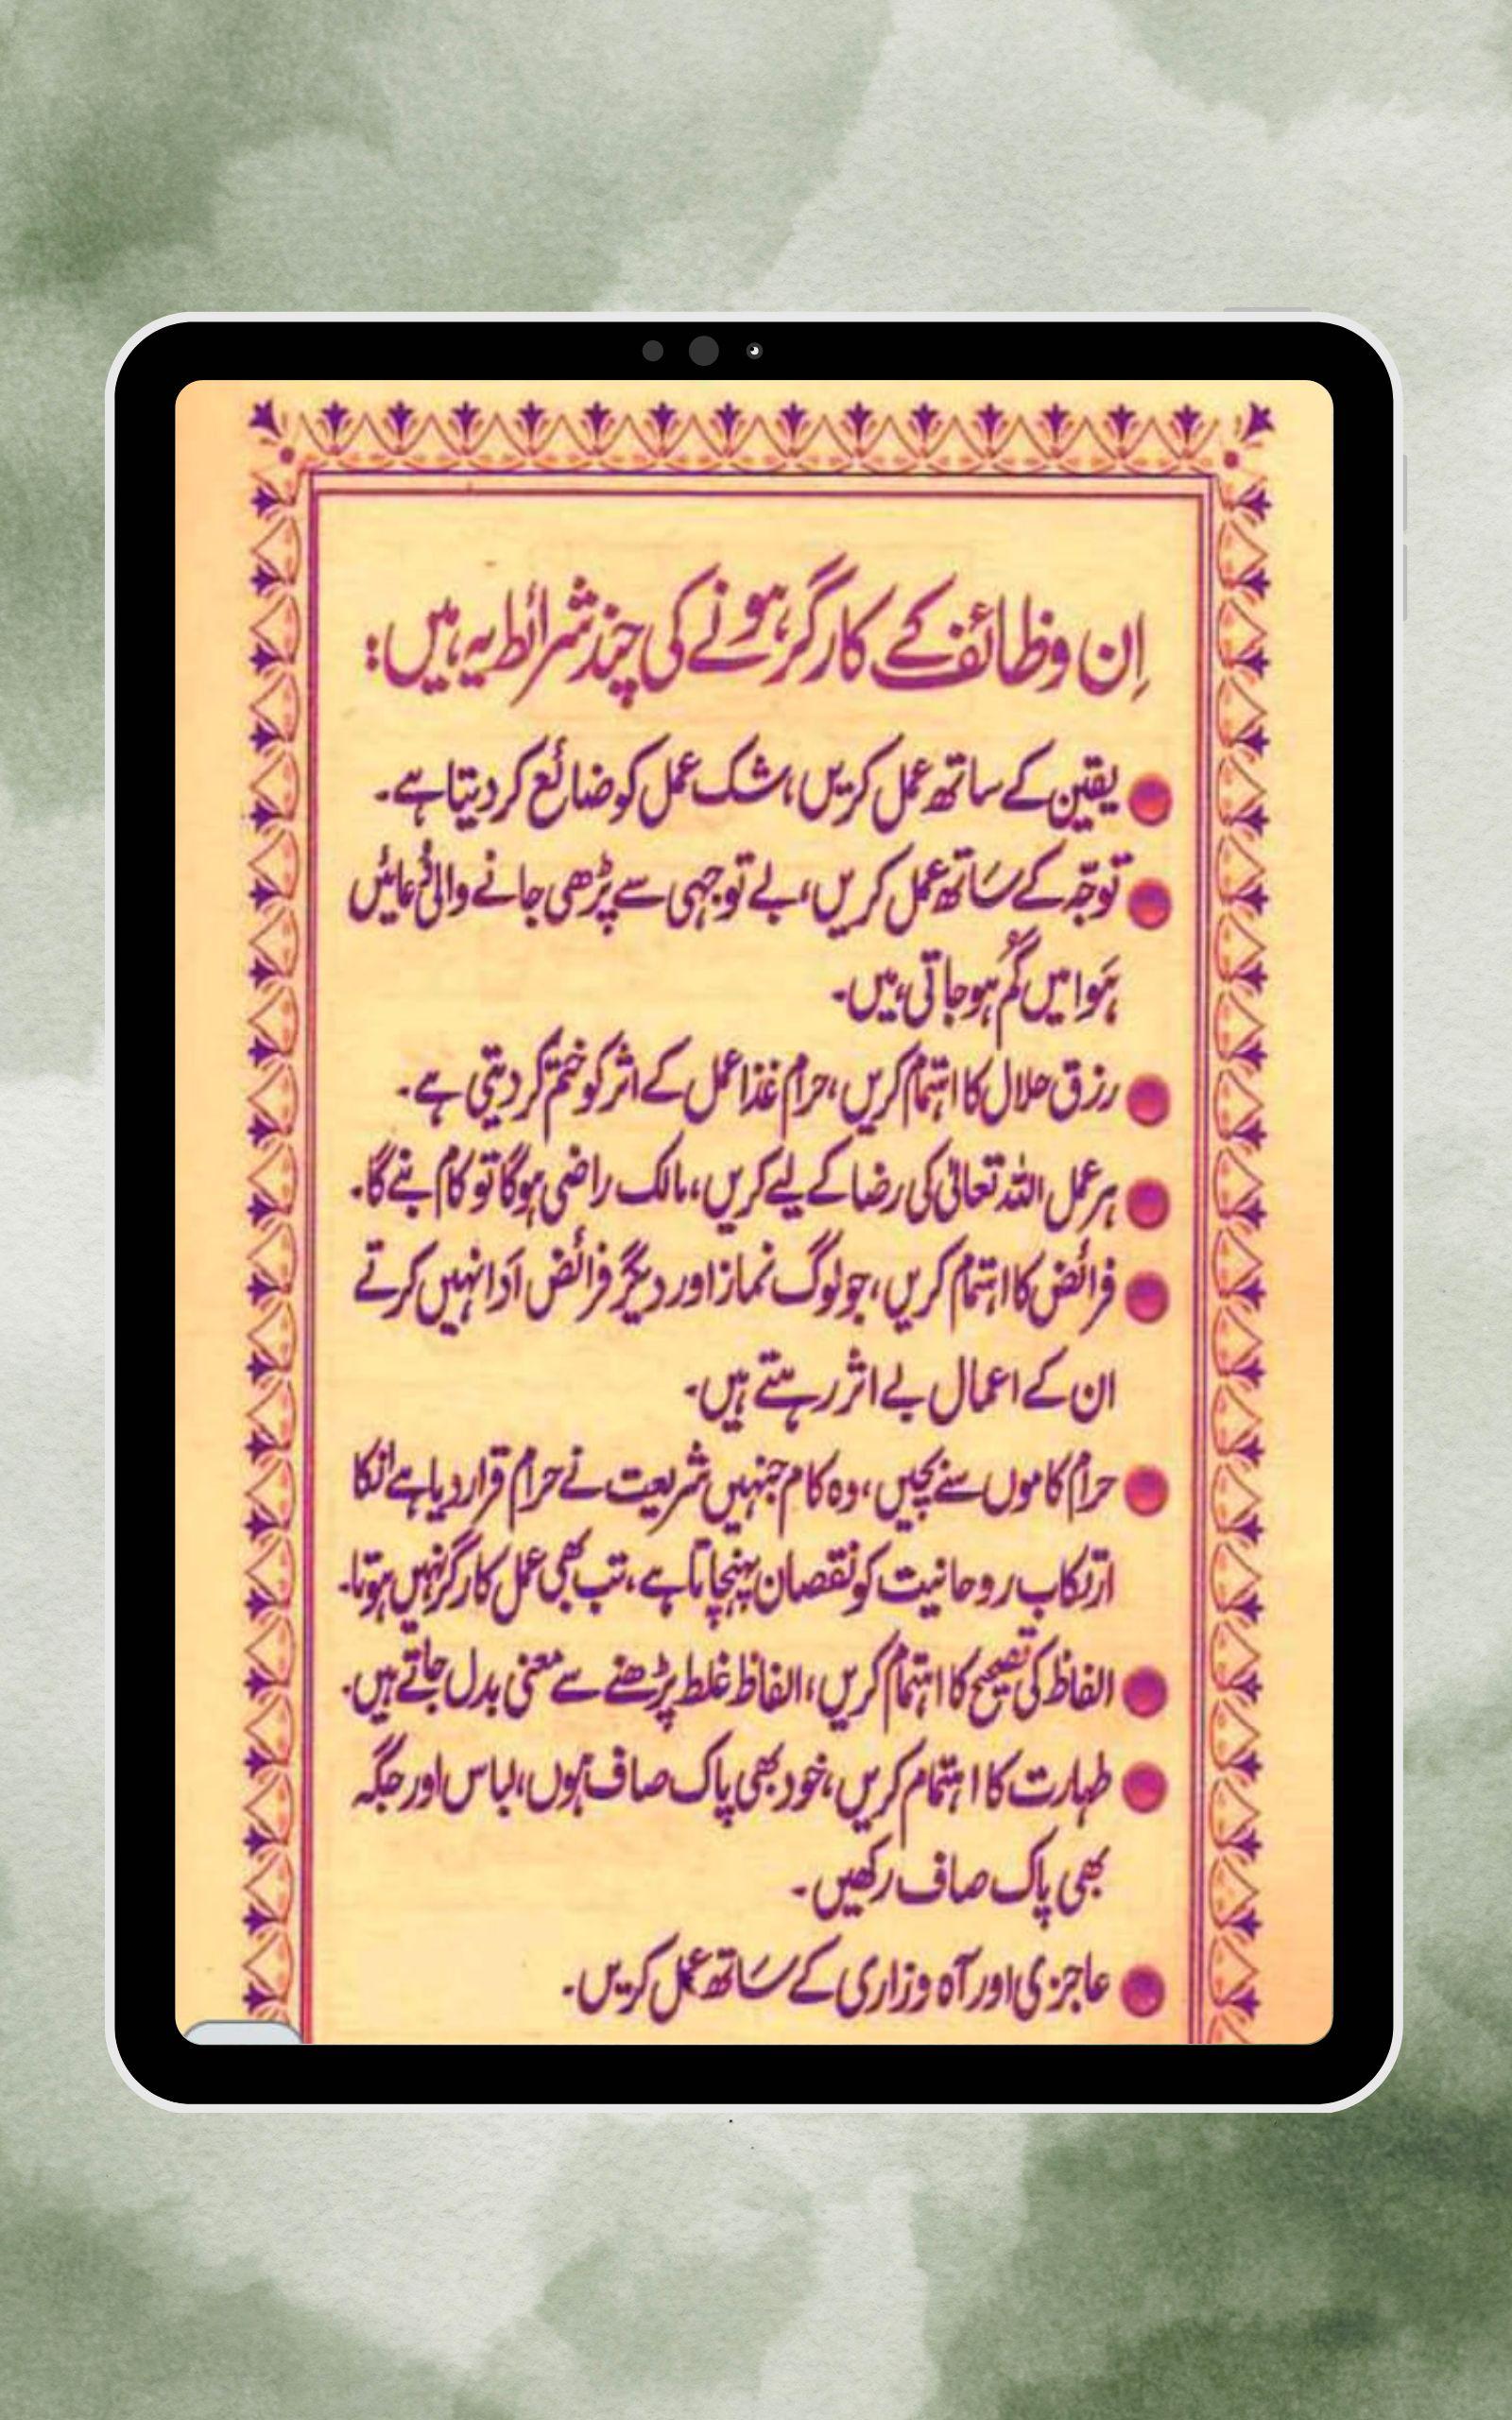 اِن وظائف کے کارگر ہونے کی چند شرائط یہ ہیں:
یقین کے ساتھ عمل کریں، شک عمل کو ضائع کر دیتا ہے۔
توجّہ کے سَاتھ عمل کریں، بے توجہی سے پڑھی جانے والی دُعائیں
ہَوا میں گُم ہو جاتی ہیں۔
رزق حلال کا اہتمام کریں، حرام غذا عمل کے اثر کو ختم کر دیتی ہے۔
ہر عمل اللہ تعالیٰ کی رضا کے لیے کریں، مالک راضی ہوگا تو کام بنے گا۔
فرائض کا اہتمام کریں، جو لوگ نماز اور دیگر فرائض اَدا نہیں کرتے
ان کے اعمال بے اثر رہتے ہیں۔
حرام کاموں سے بچیں، وہ کام جنہیں شریعت نے حرام قرار دیا ہے انکا
ارتکاب روحانیت کو نقصان پہنچاتا ہے، تب بھی عمل کارگر نہیں ہوتا۔
الفاظ کی تصحیح کا اہتمام کریں، الفاظ غلط پڑھنے سے معنی بدل جاتے ہیں۔
طہارت کا اہتمام کریں، خود بھی پاک صاف ہوں، لباس اور جگہ
بھی پاک صاف رکھیں۔
عاجزی اور آہ وزاری کے سَاتھ عمل کریں۔